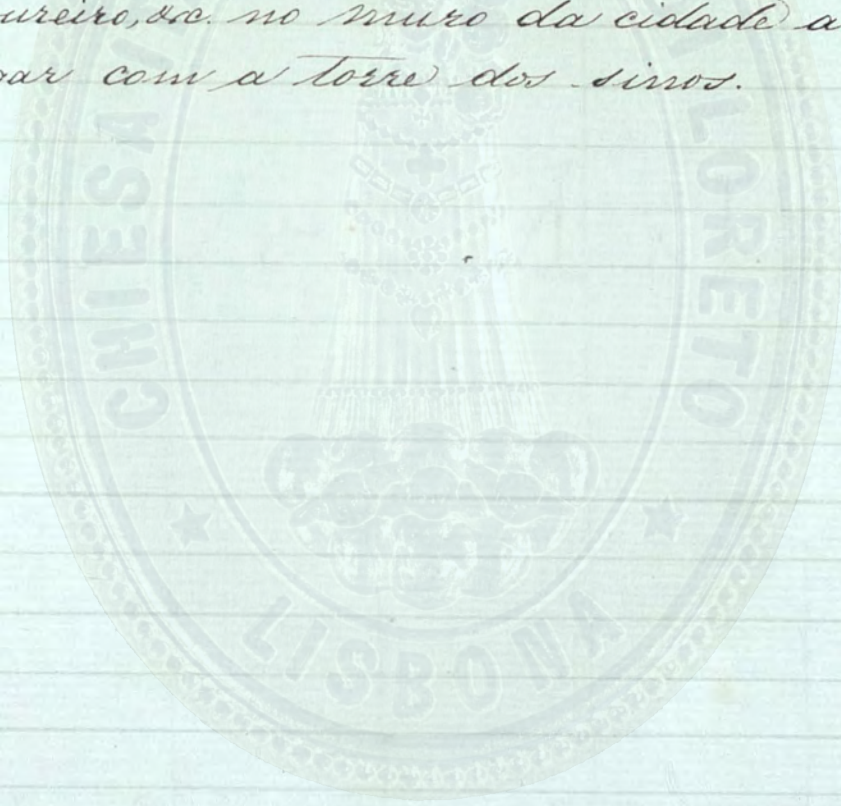 ureiro, &c. no muro da cidade a
gar com a torre dos sinos.
CHIESA
LORETO
LISBONA